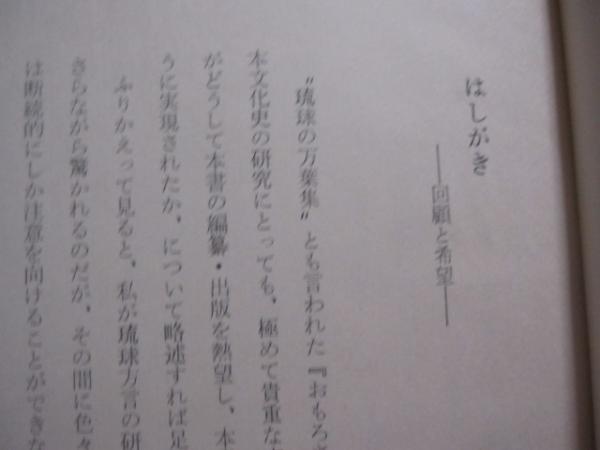 はしがき
――回顧と希望――
〝琉球の万葉集〟とも言われた『おもろさ
本文化史の研究にとっても、極めて貴重な
がどうして本書の編纂・出版を熱望し、本
うに実現されたか、について略述すれば足
ふりかえって見ると、私が琉球方言の研
さらながら驚かれるのだが、その間に色々
は断続的にしか注意を向けることができな